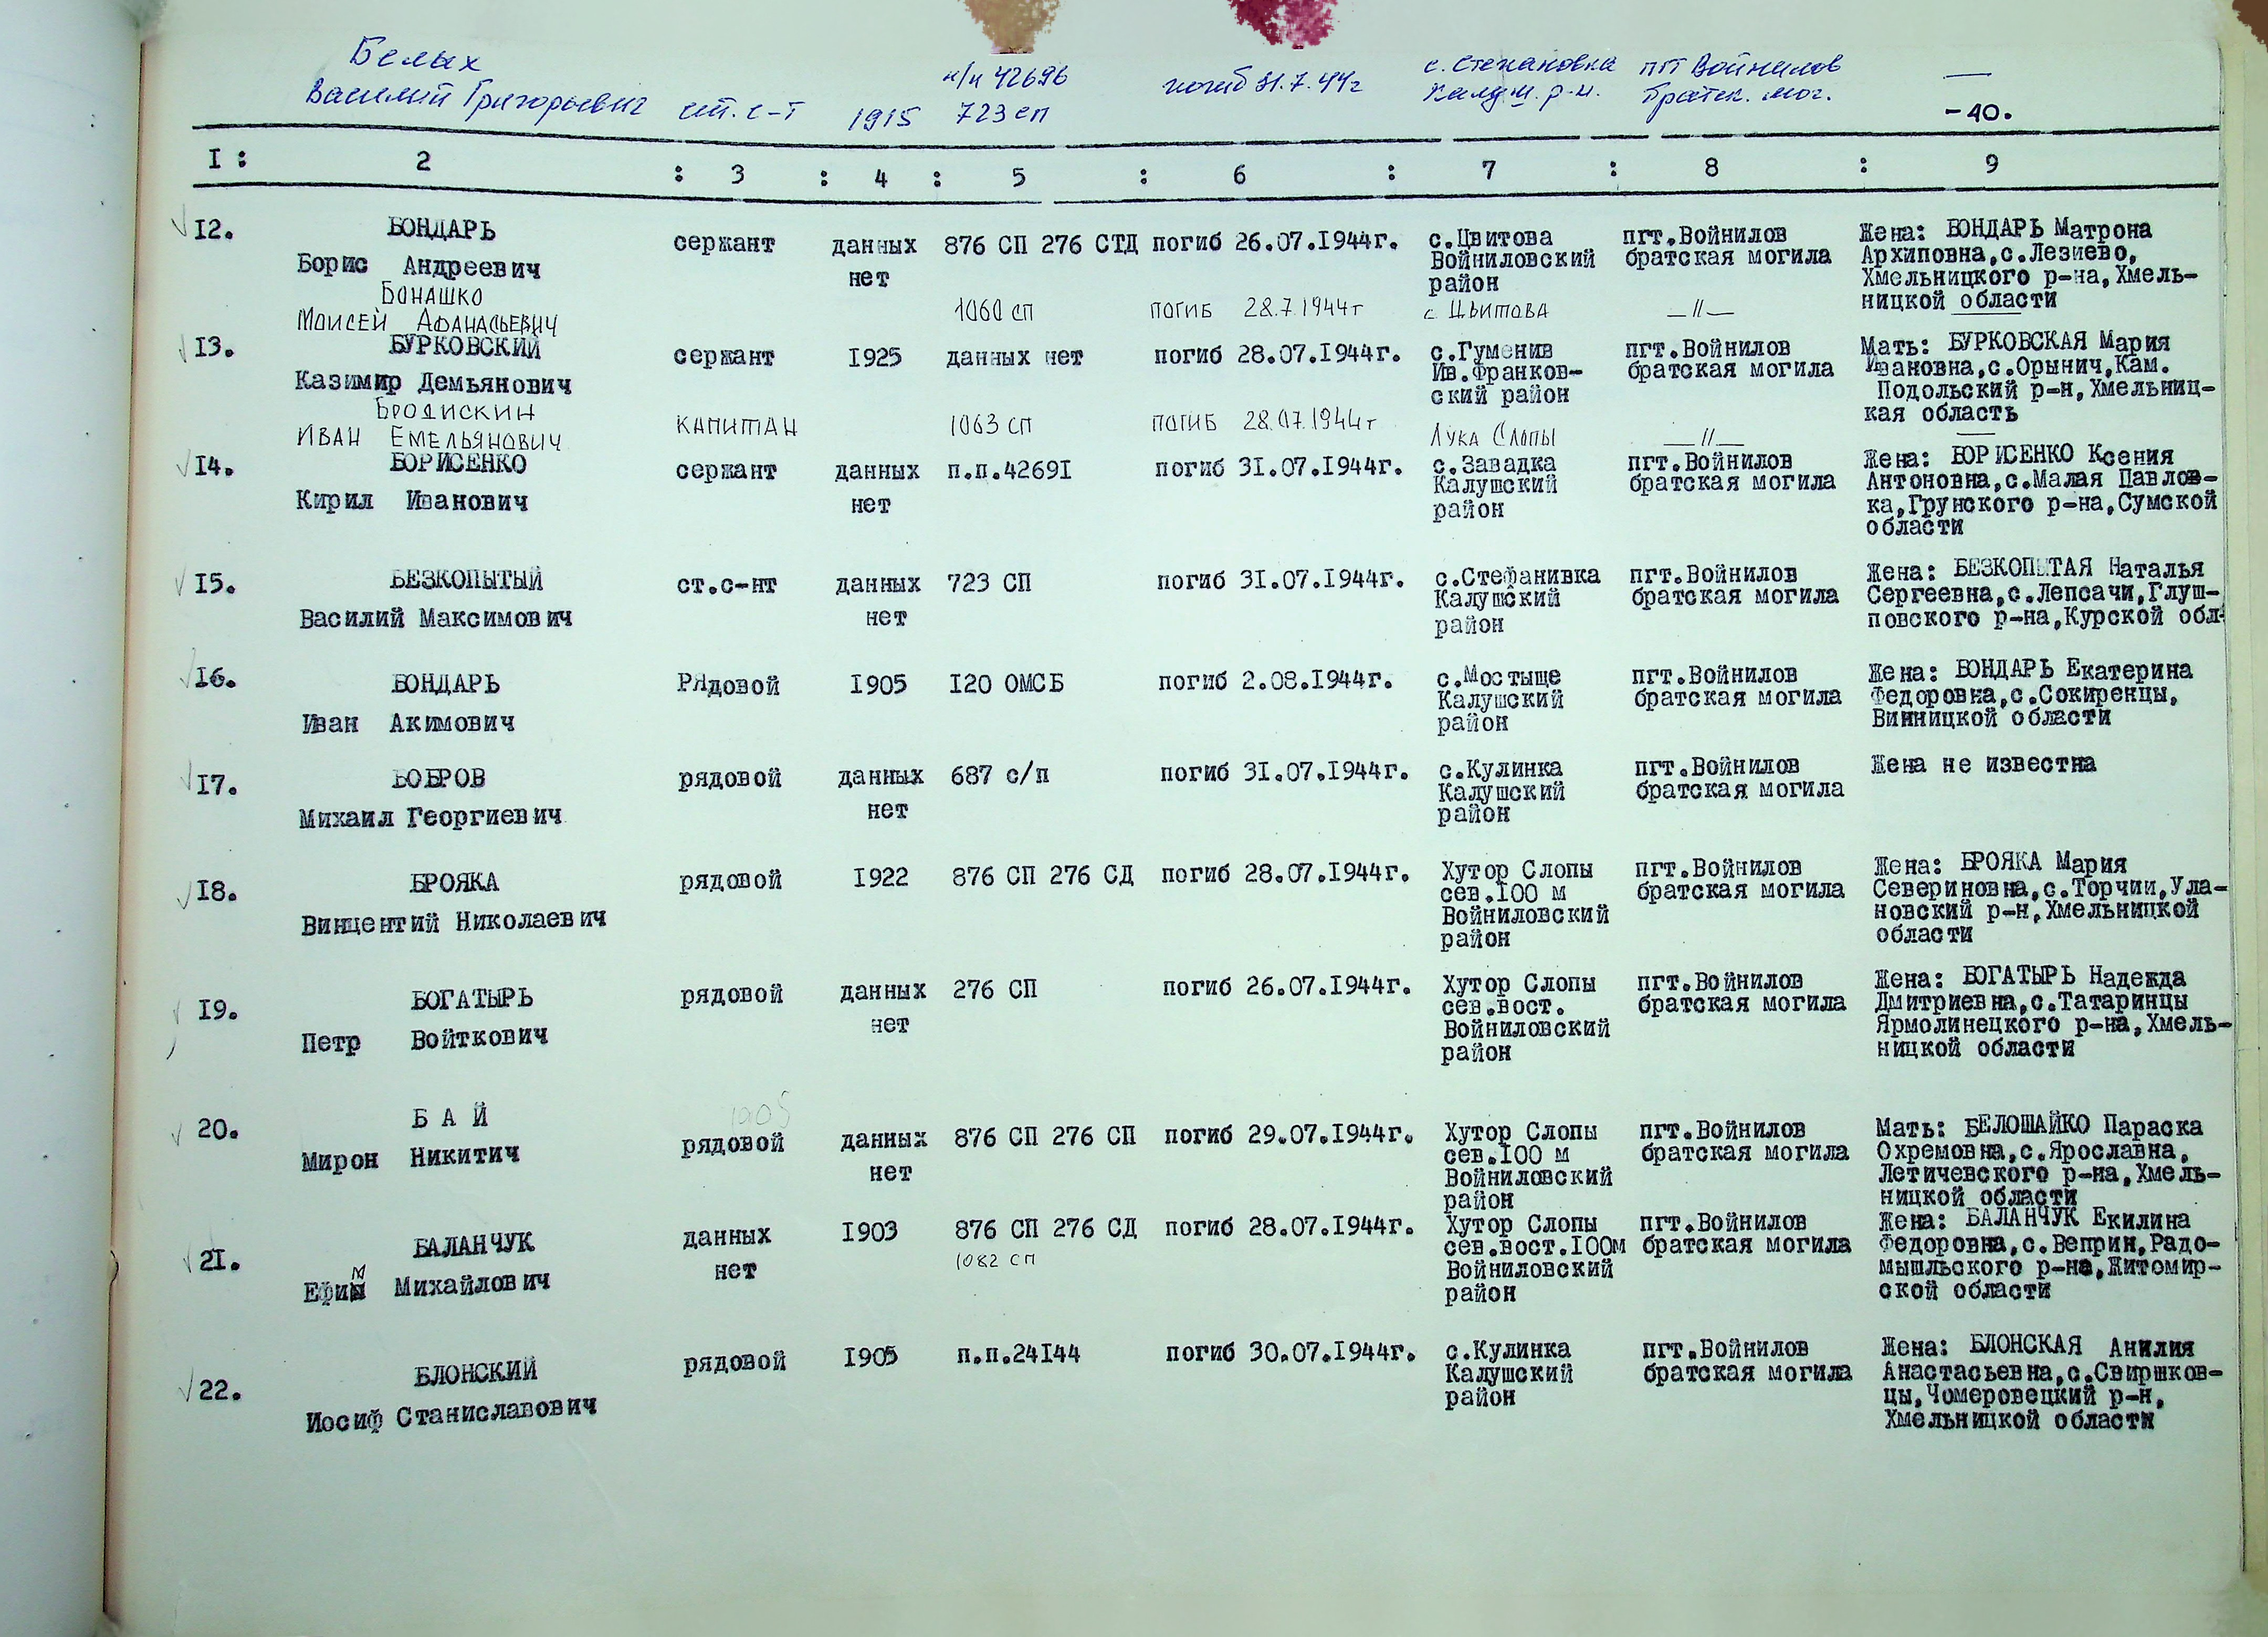 Белых
Василий Григорьевич ст. с-т 1915 п/п 42696 723 сп погиб 31.7.44г с. Степановка Калуш. р-н. пгт Войнилов братск. мог. —
-40.
I : 2 : 3 : 4 : 5 : 6 : 7 : 8 : 9
I2. БОНДАРЬ сержант данных 876 СП 276 СТД погиб 26.07.I944г. с.Цвитова пгт.Войнилов Жена: БОНДАРЬ Матрона
Борис Андреевич нет Войниловский братская могила Архиповна,с.Лезнево,
район Хмельницкого р-на,Хмель-
ницкой области
Бонашко
Моисей Афанасьевич 1060 сп погиб 28.7.1944г с Цвитова —//— —
I3. БУРКОВСКИЙ сержант I925 данных нет погиб 28.07.I944г. с.Гуменив пгт.Войнилов Мать: БУРКОВСКАЯ Мария
Казимир Демьянович Ив.Франков- братская могила Ивановна,с.Орынич,Кам.
ский район Подольский р-н,Хмельниц-
кая область
Бродискин
Иван Емельянович капитан 1063 сп погиб 28.07.1944г Лука Слопы —//— —
I4. БОРИСЕНКО сержант данных п.п.4269I погиб 31.07.I944г. с.Завадка пгт.Войнилов Жена: БОРИСЕНКО Ксения
Кирил Иванович нет Калушский братская могила Антоновна,с.Малая Павлов-
район ка,Грунского р-на,Сумской
области
I5. БЕЗКОПЫТЫЙ ст.с-нт данных 723 СП погиб 31.07.I944г. с.Стефанивка пгт.Войнилов Жена: БЕЗКОПЫТАЯ Наталья
Василий Максимович нет Калушский братская могила Сергеевна,с.Лепсачи,Глуш-
район повского р-на,Курской обл.
I6. БОНДАРЬ РЯдовой I905 I20 ОМСБ погиб 2.08.I944г. с.Мостыще пгт.Войнилов Жена: БОНДАРЬ Екатерина
Иван Акимович Калушский братская могила Федоровна,с.Сокиренцы,
район Винницкой области
I7. БОБРОВ рядовой данных 687 с/п погиб 3I.07.I944г. с.Кулинка пгт.Войнилов Жена не известна
Михаил Георгиевич нет Калушский братская могила
район
I8. БРОЯКА рядовой I922 876 СП 276 СД погиб 28.07.I944г. Хутор Слопы пгт.Войнилов Жена: БРОЯКА Мария
Винцентий Николаевич сев.I00 м братская могила Севериновна,с.Торчин,Ула-
Войниловский новский р-н,Хмельницкой
район области
I9. БОГАТЫРЬ рядовой данных 276 СП погиб 26.07.I944г. Хутор Слопы пгт.Войнилов Жена: БОГАТЫРЬ Надежда
Петр Войткович нет сев.вост. братская могила Дмитриевна,с.Татаринцы
Войниловский Ярмолинецкого р-на,Хмель-
район ницкой области
1905
20. Б А Й рядовой данных 876 СП 276 СП погиб 29.07.I944г. Хутор Слопы пгт.Войнилов Мать: БЕЛОШАЙКО Параска
Мирон Никитич нет сев.I00 м братская могила Охремовна,с.Ярославна,
Войниловский Летичевского р-на,Хмель-
район ницкой области
2I. БАЛАНЧУК данных I903 876 СП 276 СД погиб 28.07.I944г. Хутор Слопы пгт.Войнилов Жена: БАЛАНЧУК Екилина
Ефим Михайлович нет 1082 сп сев.вост.I00м братская могила Федоровна,с.Веприн,Радо-
Войниловский мышльского р-на,Житомир-
район ской области
22. БЛОНСКИЙ рядовой I905 п.п.24I44 погиб 30.07.I944г. с.Кулинка пгт.Войнилов Жена: БЛОНСКАЯ Анилия
Иосиф Станиславович Калушский братская могила Анастасьевна,с.Свиршков-
район цы,Чомеровецкий р-н,
Хмельницкой области